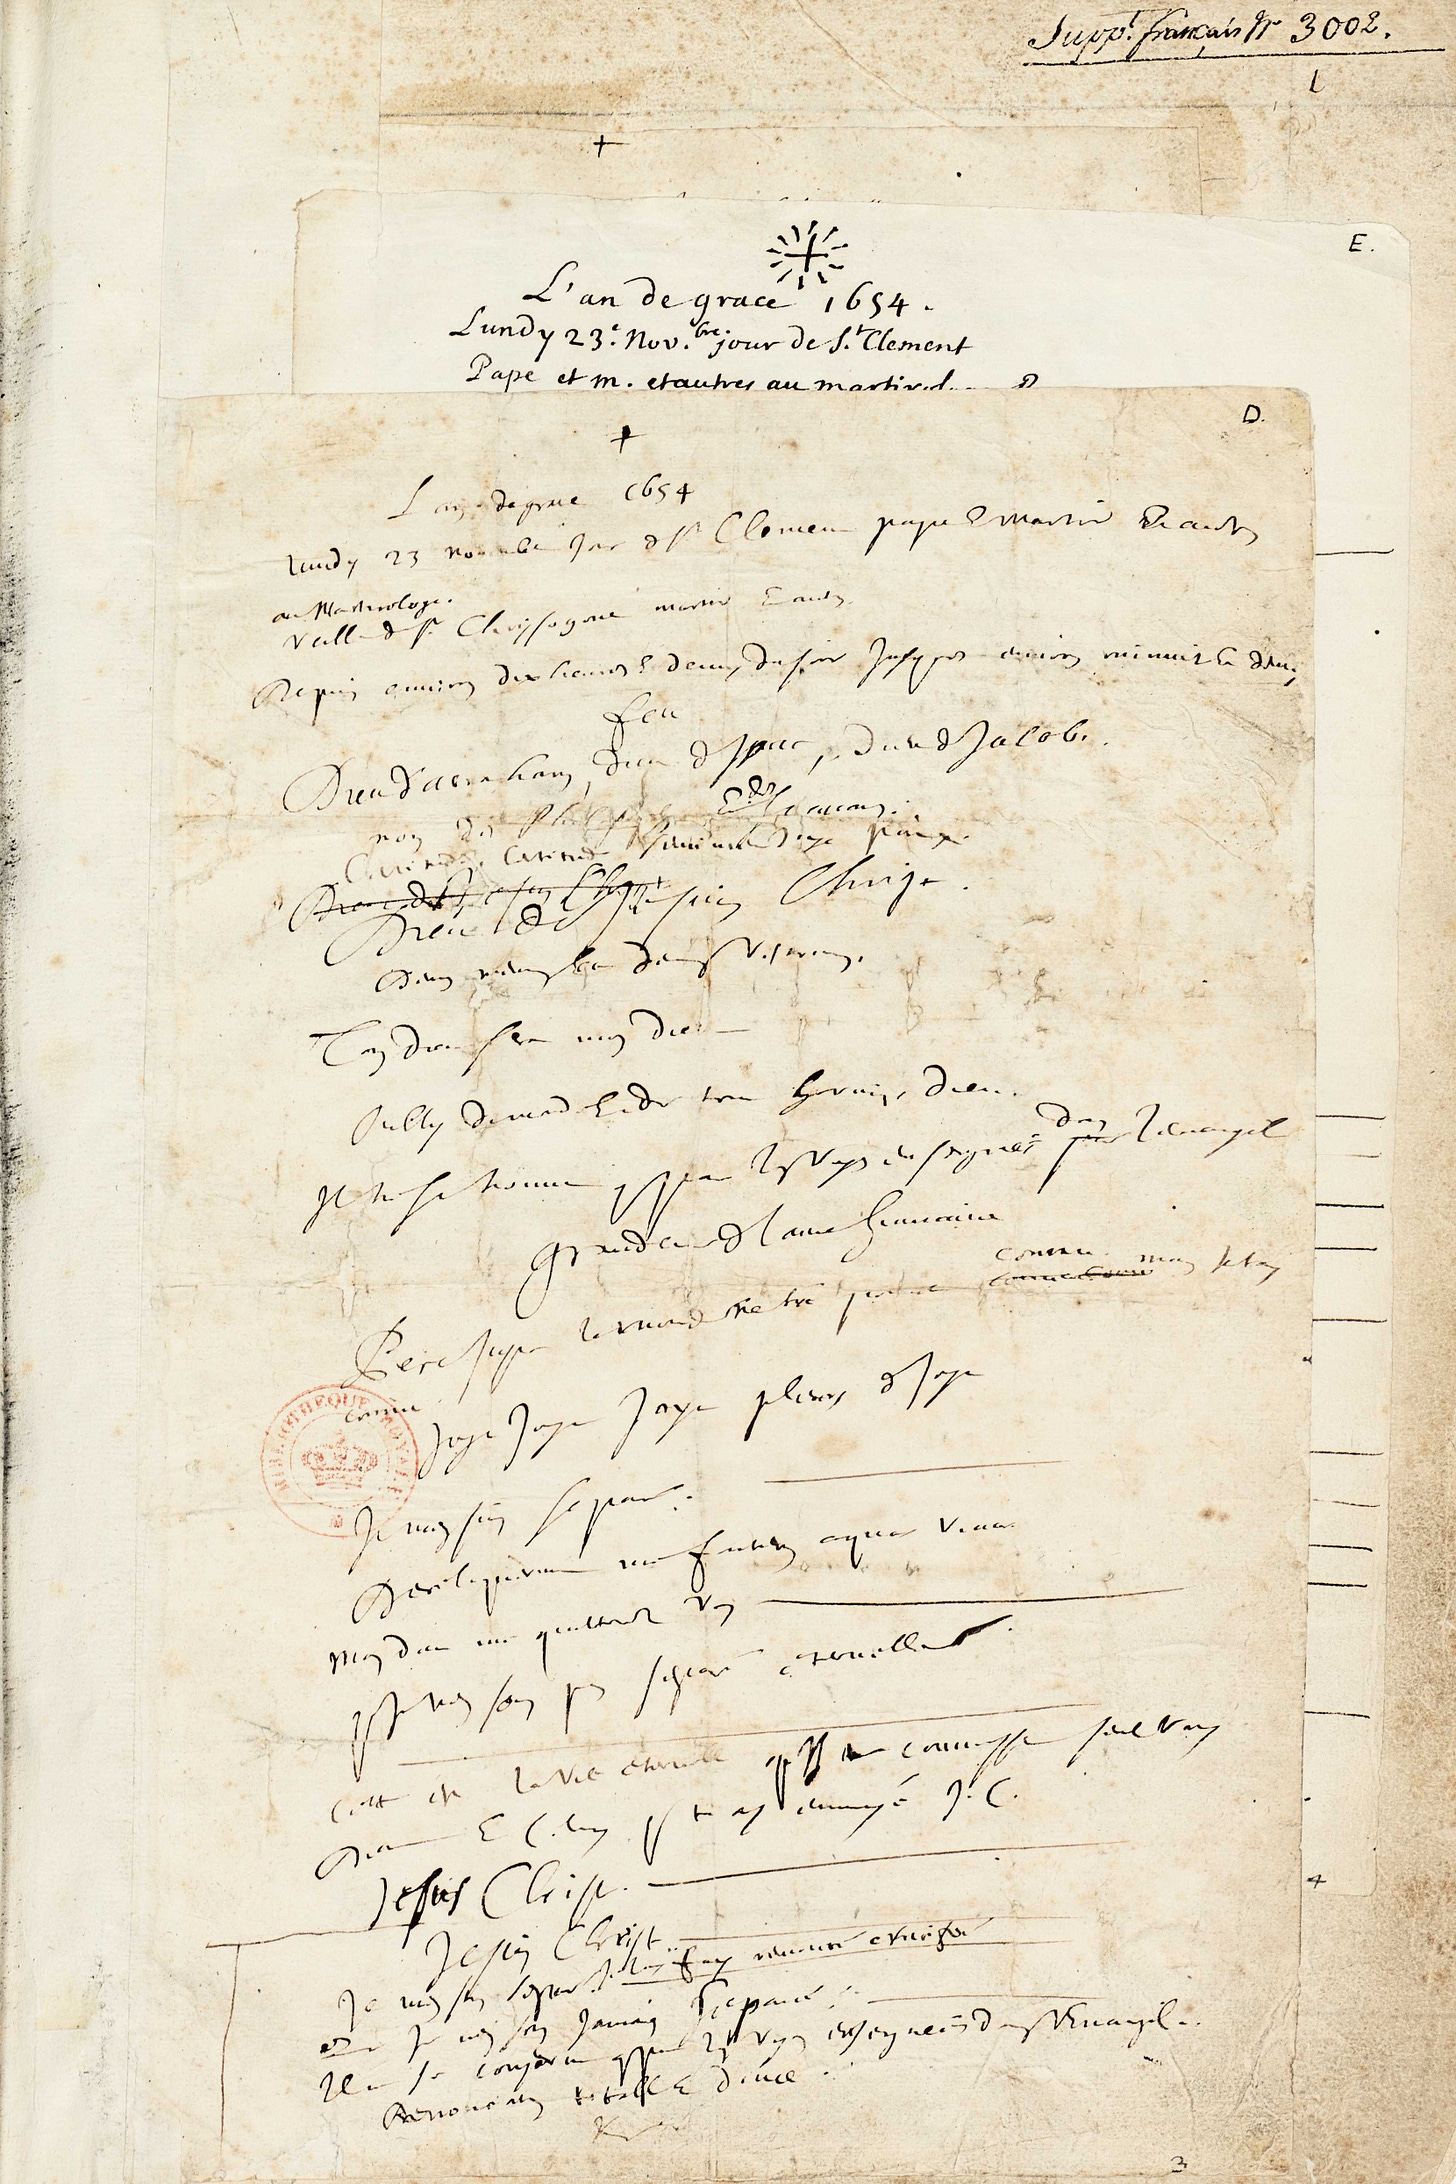 Supp.t français N° 3002.
1
+
E.
L'an de grace 1654.
Lundy 23.e Nov.bre jour de S.t Clement
Pape et m. et autres au martirol.
D.
+
L'an de grace 1654
Lundy 23 novembre jour de St Clement pape et martir et autres
au Martirologe.
veille de St Chrysogone martir et autres
Depuis environ dix heures et demy du soir jusques environ minuit et demy
feu
Dieu d'Abraham, Dieu d'Isaac, Dieu de Jacob.
non des Philosophes et des scavans.
Certitude, certitude sentiment joye paix.
Dieu de Jesus Christ
Dieu de Jesus Christ.
Deum meum et Deum vestrum.
Ton Dieu sera mon Dieu
oubly du monde et de tout hormis Dieu.
dans
Il ne se trouve que par les voyes enseignées par l'Evangile
Grandeur de l'ame humaine
connu mais je t'ay
Pere juste le monde ne t'a point
connu
Joye Joye Joye pleurs de joye
Je m'en suis separé.
Dereliquerunt me fontem aquae vivae
Mon Dieu me quitterez vous
que je n'en sois pas separé eternellement.
Cette est la vie eternelle qu'ils te connoissent seul vray
Dieu et celuy que tu as envoyé J. C.
Jesus Christ.
Jesus Christ
Je m'en suis separé. je l'ay fuy renoncé crucifié
que je n'en sois jamais separé.
Il ne se conserve que par les voyes enseignées dans l'Evangile.
Renonciation totale et douce.
BIBLIOTHEQUE ROYALE
4
3